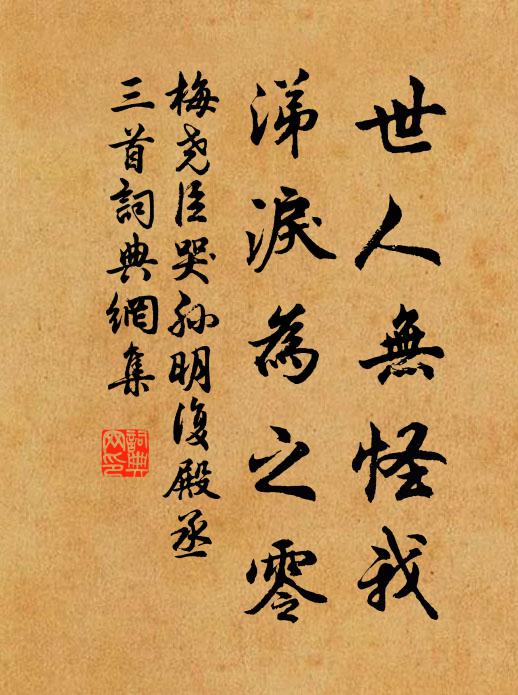 世人無怪我
涕淚為之零
梅堯臣哭孫明復殿丞
三首詞典網集
詞典
网印